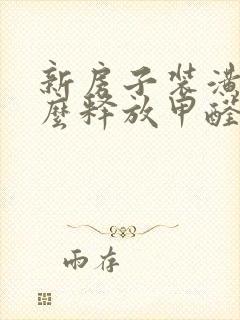 新房子装潢
麽释放甲醛
雨存